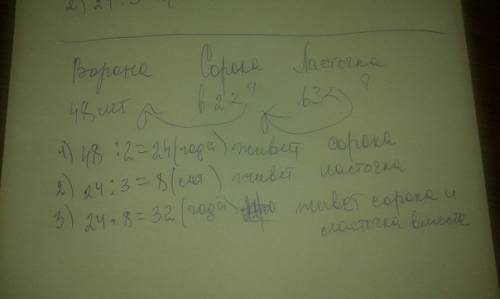 Ворона Сорока Ласточка
48 лет в 2 <, ? в 3 < ?
1) 48 : 2 = 24 (года) живёт сорока
2) 24 : 3 = 8 (лет) живёт ласточка
3) 24 + 8 = 32 (года) живёт сорока и
ласточка вместе